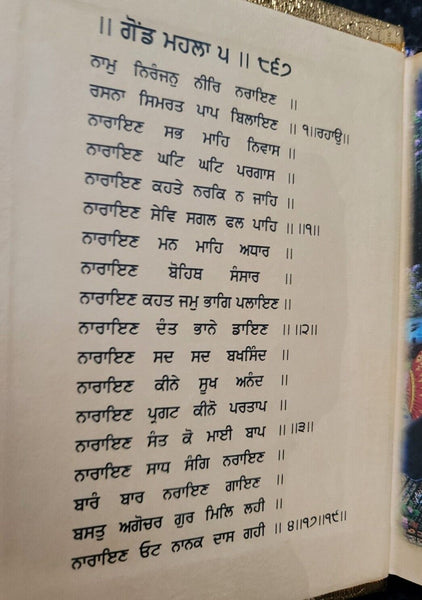 ॥ ਗੋਂਡ ਮਹਲਾ ੫ ॥ ੮੬੭
ਨਾਮੁ ਨਿਰੰਜਨੁ ਨੀਰਿ ਨਰਾਇਣ ॥
ਰਸਨਾ ਸਿਮਰਤ ਪਾਪ ਬਿਲਾਇਣ ॥ ੧॥ਰਹਾਉ॥
ਨਾਰਾਇਣ ਸਭ ਮਾਹਿ ਨਿਵਾਸ ॥
ਨਾਰਾਇਣ ਘਟਿ ਘਟਿ ਪਰਗਾਸ ॥
ਨਾਰਾਇਣ ਕਹਤੇ ਨਰਕਿ ਨ ਜਾਹਿ ॥
ਨਾਰਾਇਣ ਸੇਵਿ ਸਗਲ ਫਲ ਪਾਹਿ ॥॥੧॥
ਨਾਰਾਇਣ ਮਨ ਮਾਹਿ ਅਧਾਰ ॥
ਨਾਰਾਇਣ ਬੋਹਿਥ ਸੰਸਾਰ ॥
ਨਾਰਾਇਣ ਕਹਤ ਜਮੁ ਭਾਗਿ ਪਲਾਇਣ ॥
ਨਾਰਾਇਣ ਦੰਤ ਭਾਨੇ ਡਾਇਣ ॥॥੨॥
ਨਾਰਾਇਣ ਸਦ ਸਦ ਬਖਸਿੰਦ ॥
ਨਾਰਾਇਣ ਕੀਨੇ ਸੂਖ ਅਨੰਦ ॥
ਨਾਰਾਇਣ ਪ੍ਰਗਟ ਕੀਨੋ ਪਰਤਾਪ ॥
ਨਾਰਾਇਣ ਸੰਤ ਕੋ ਮਾਈ ਬਾਪ ॥॥੩॥
ਨਾਰਾਇਣ ਸਾਧ ਸੰਗਿ ਨਰਾਇਣ ॥
ਬਾਰੰ ਬਾਰ ਨਰਾਇਣ ਗਾਇਣ ॥
ਬਸਤੁ ਅਗੋਚਰ ਗੁਰ ਮਿਲਿ ਲਹੀ ॥
ਨਾਰਾਇਣ ਓਟ ਨਾਨਕ ਦਾਸ ਗਹੀ ॥ ੪॥੧੭॥੧੯॥